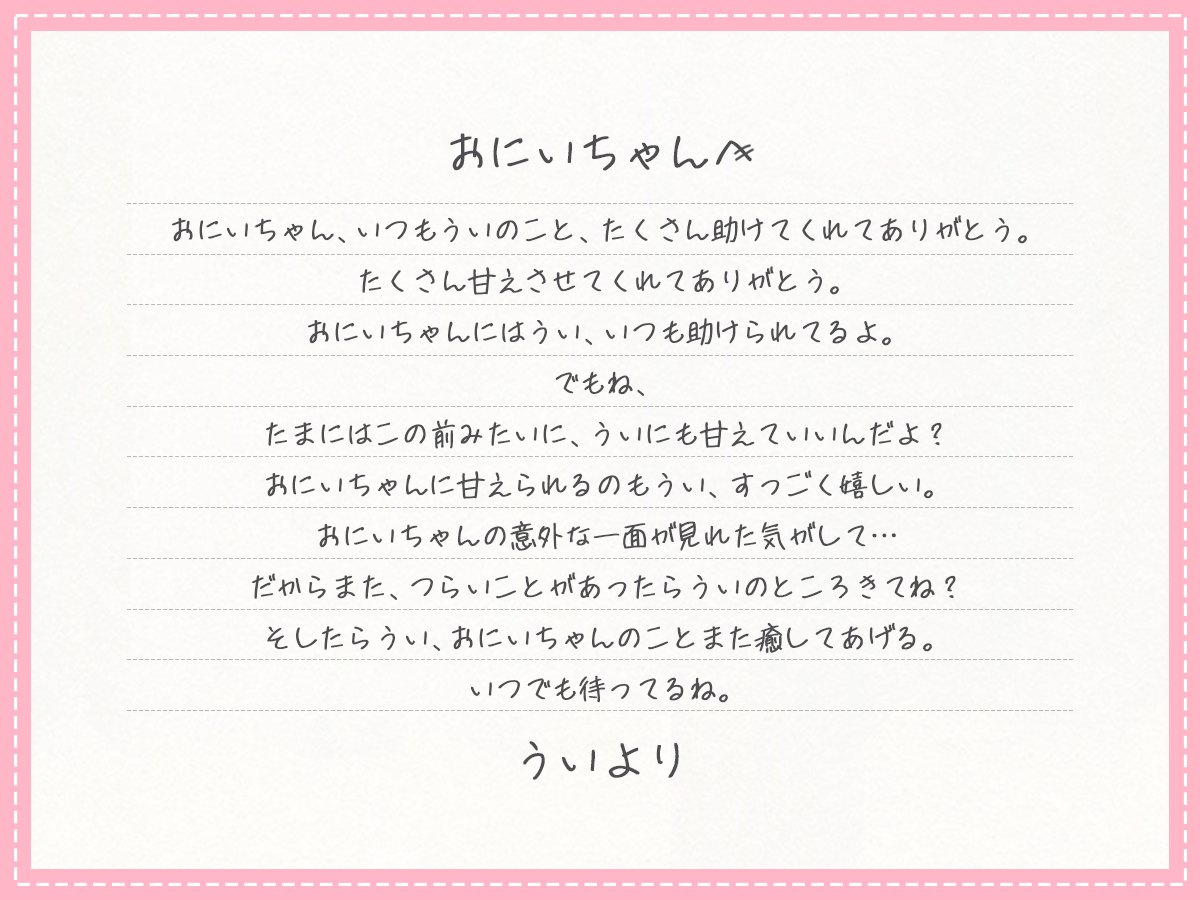 おにいちゃんへ
おにいちゃん、いつもういのこと、たくさん助けてくれてありがとう。
たくさん甘えさせてくれてありがとう。
おにいちゃんにはうい、いつも助けられてるよ。
でもね、
たまにはこの前みたいに、ういにも甘えていいんだよ？
おにいちゃんに甘えられるのもうい、すっごく嬉しい。
おにいちゃんの意外な一面が見れた気がして…
だからまた、つらいことがあったらういのところきてね？
そしたらうい、おにいちゃんのことまた癒してあげる。
いつでも待ってるね。
ういより